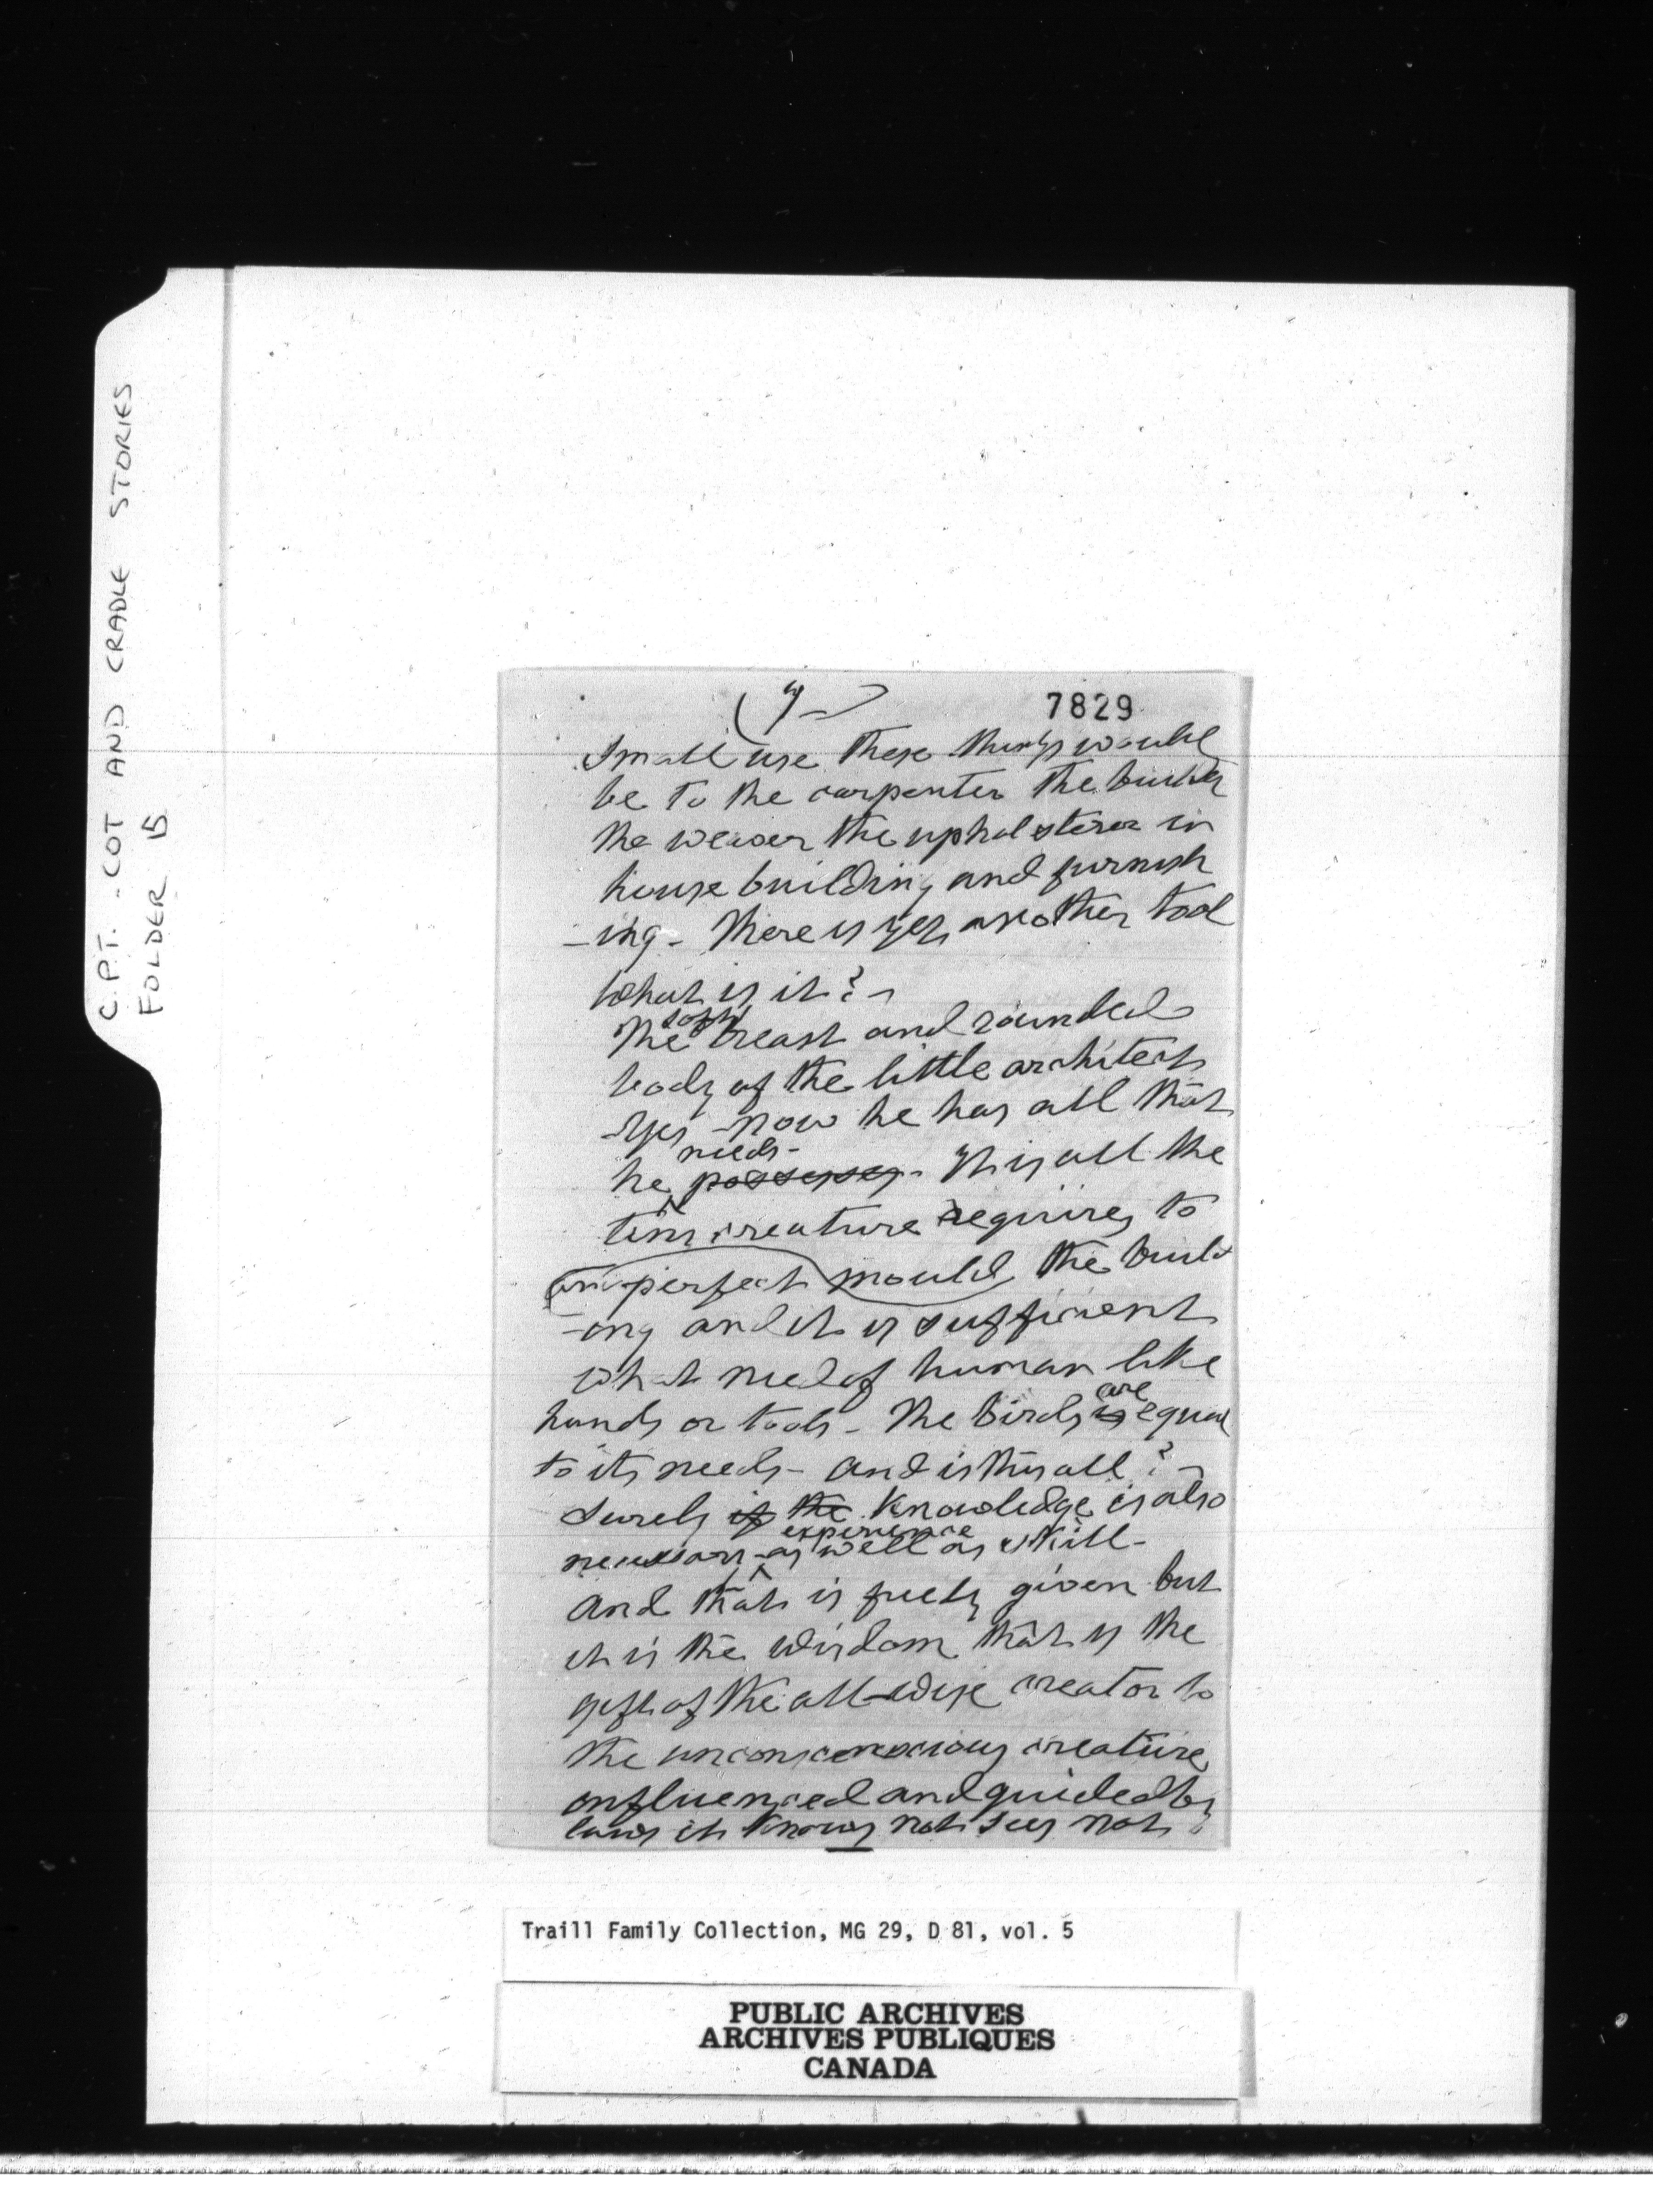 C.P.T. - COT AND CRADLE STORIES
FOLDER 15
7829
Small use these things would
be to the carpenter the builder
the weaver the upholsterer in
house building and furnish
-ing - There is yet another tool
What is it? -
The soft breast and rounded
body of the little architect
-Yes - now he has all that
he needs - possesses - It is all the
tiny creature requires to
perfect mould the build
-ing and it is sufficient
what need of human like
hands or tools - The birds is are equal
to its needs - and is this all? -
Surely if the Knowledge is also
necessary - as experience well as skill -
And that is freely given but
it is the Wisdom that is the
gift of the all-wise creator to
the creature
influenced and guided by
laws it knows not sees not
Traill Family Collection, MG 29, D 81, vol. 5
PUBLIC ARCHIVES
ARCHIVES PUBLIQUES
CANADA